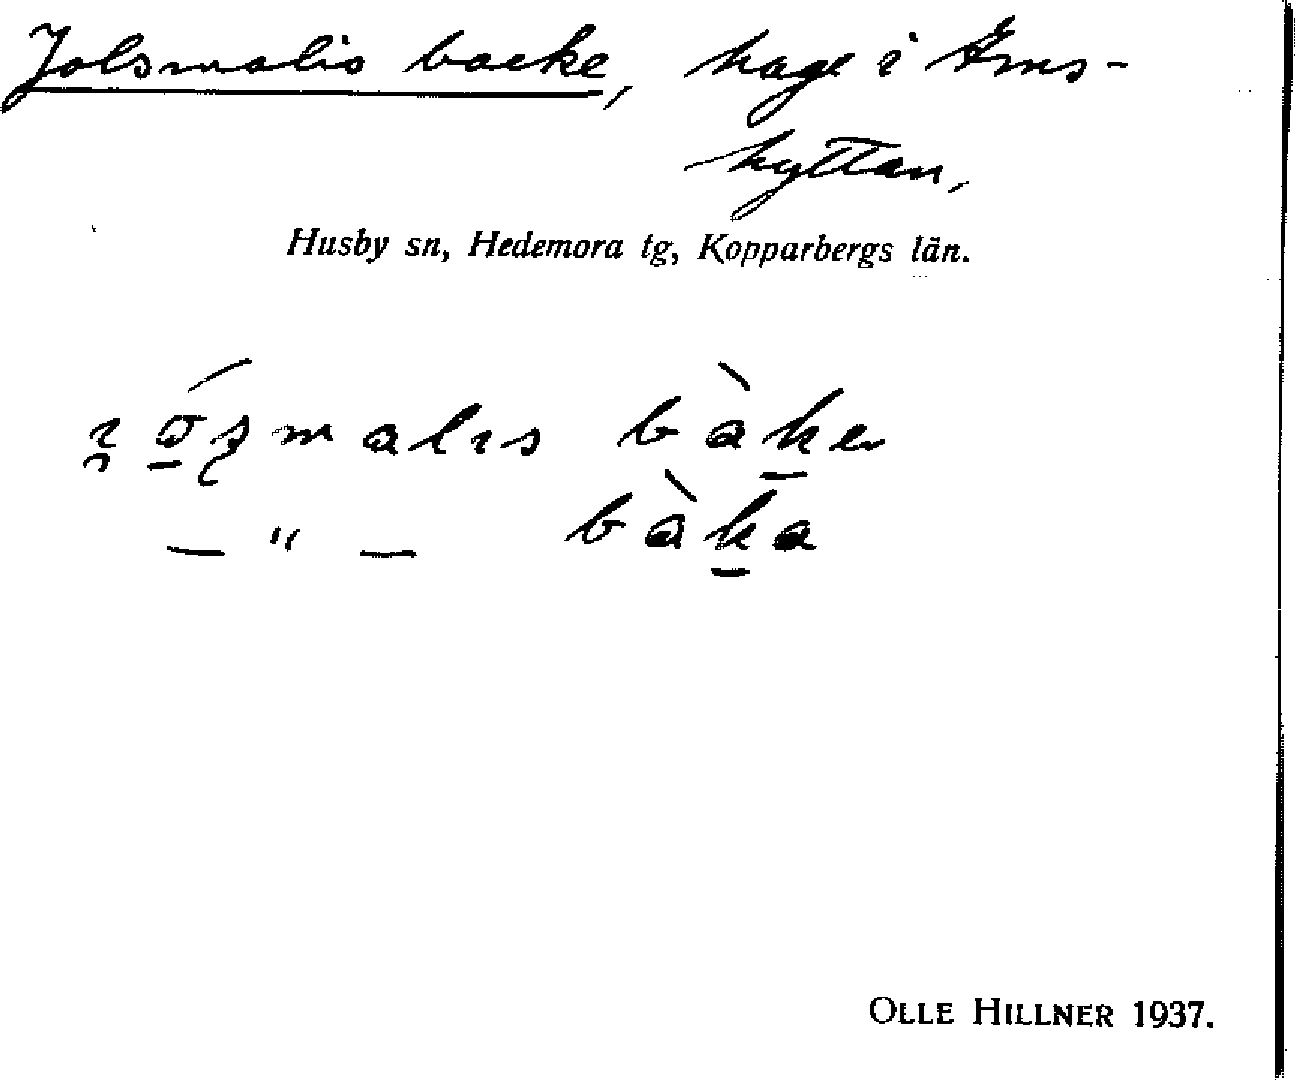 Jolsmalis backe, hage i Ams-
hyttan,
Husby sn, Hedemora tg, Kopparbergs län.
malis bàke
— " — bàka
OLLE HILLNER 1937.